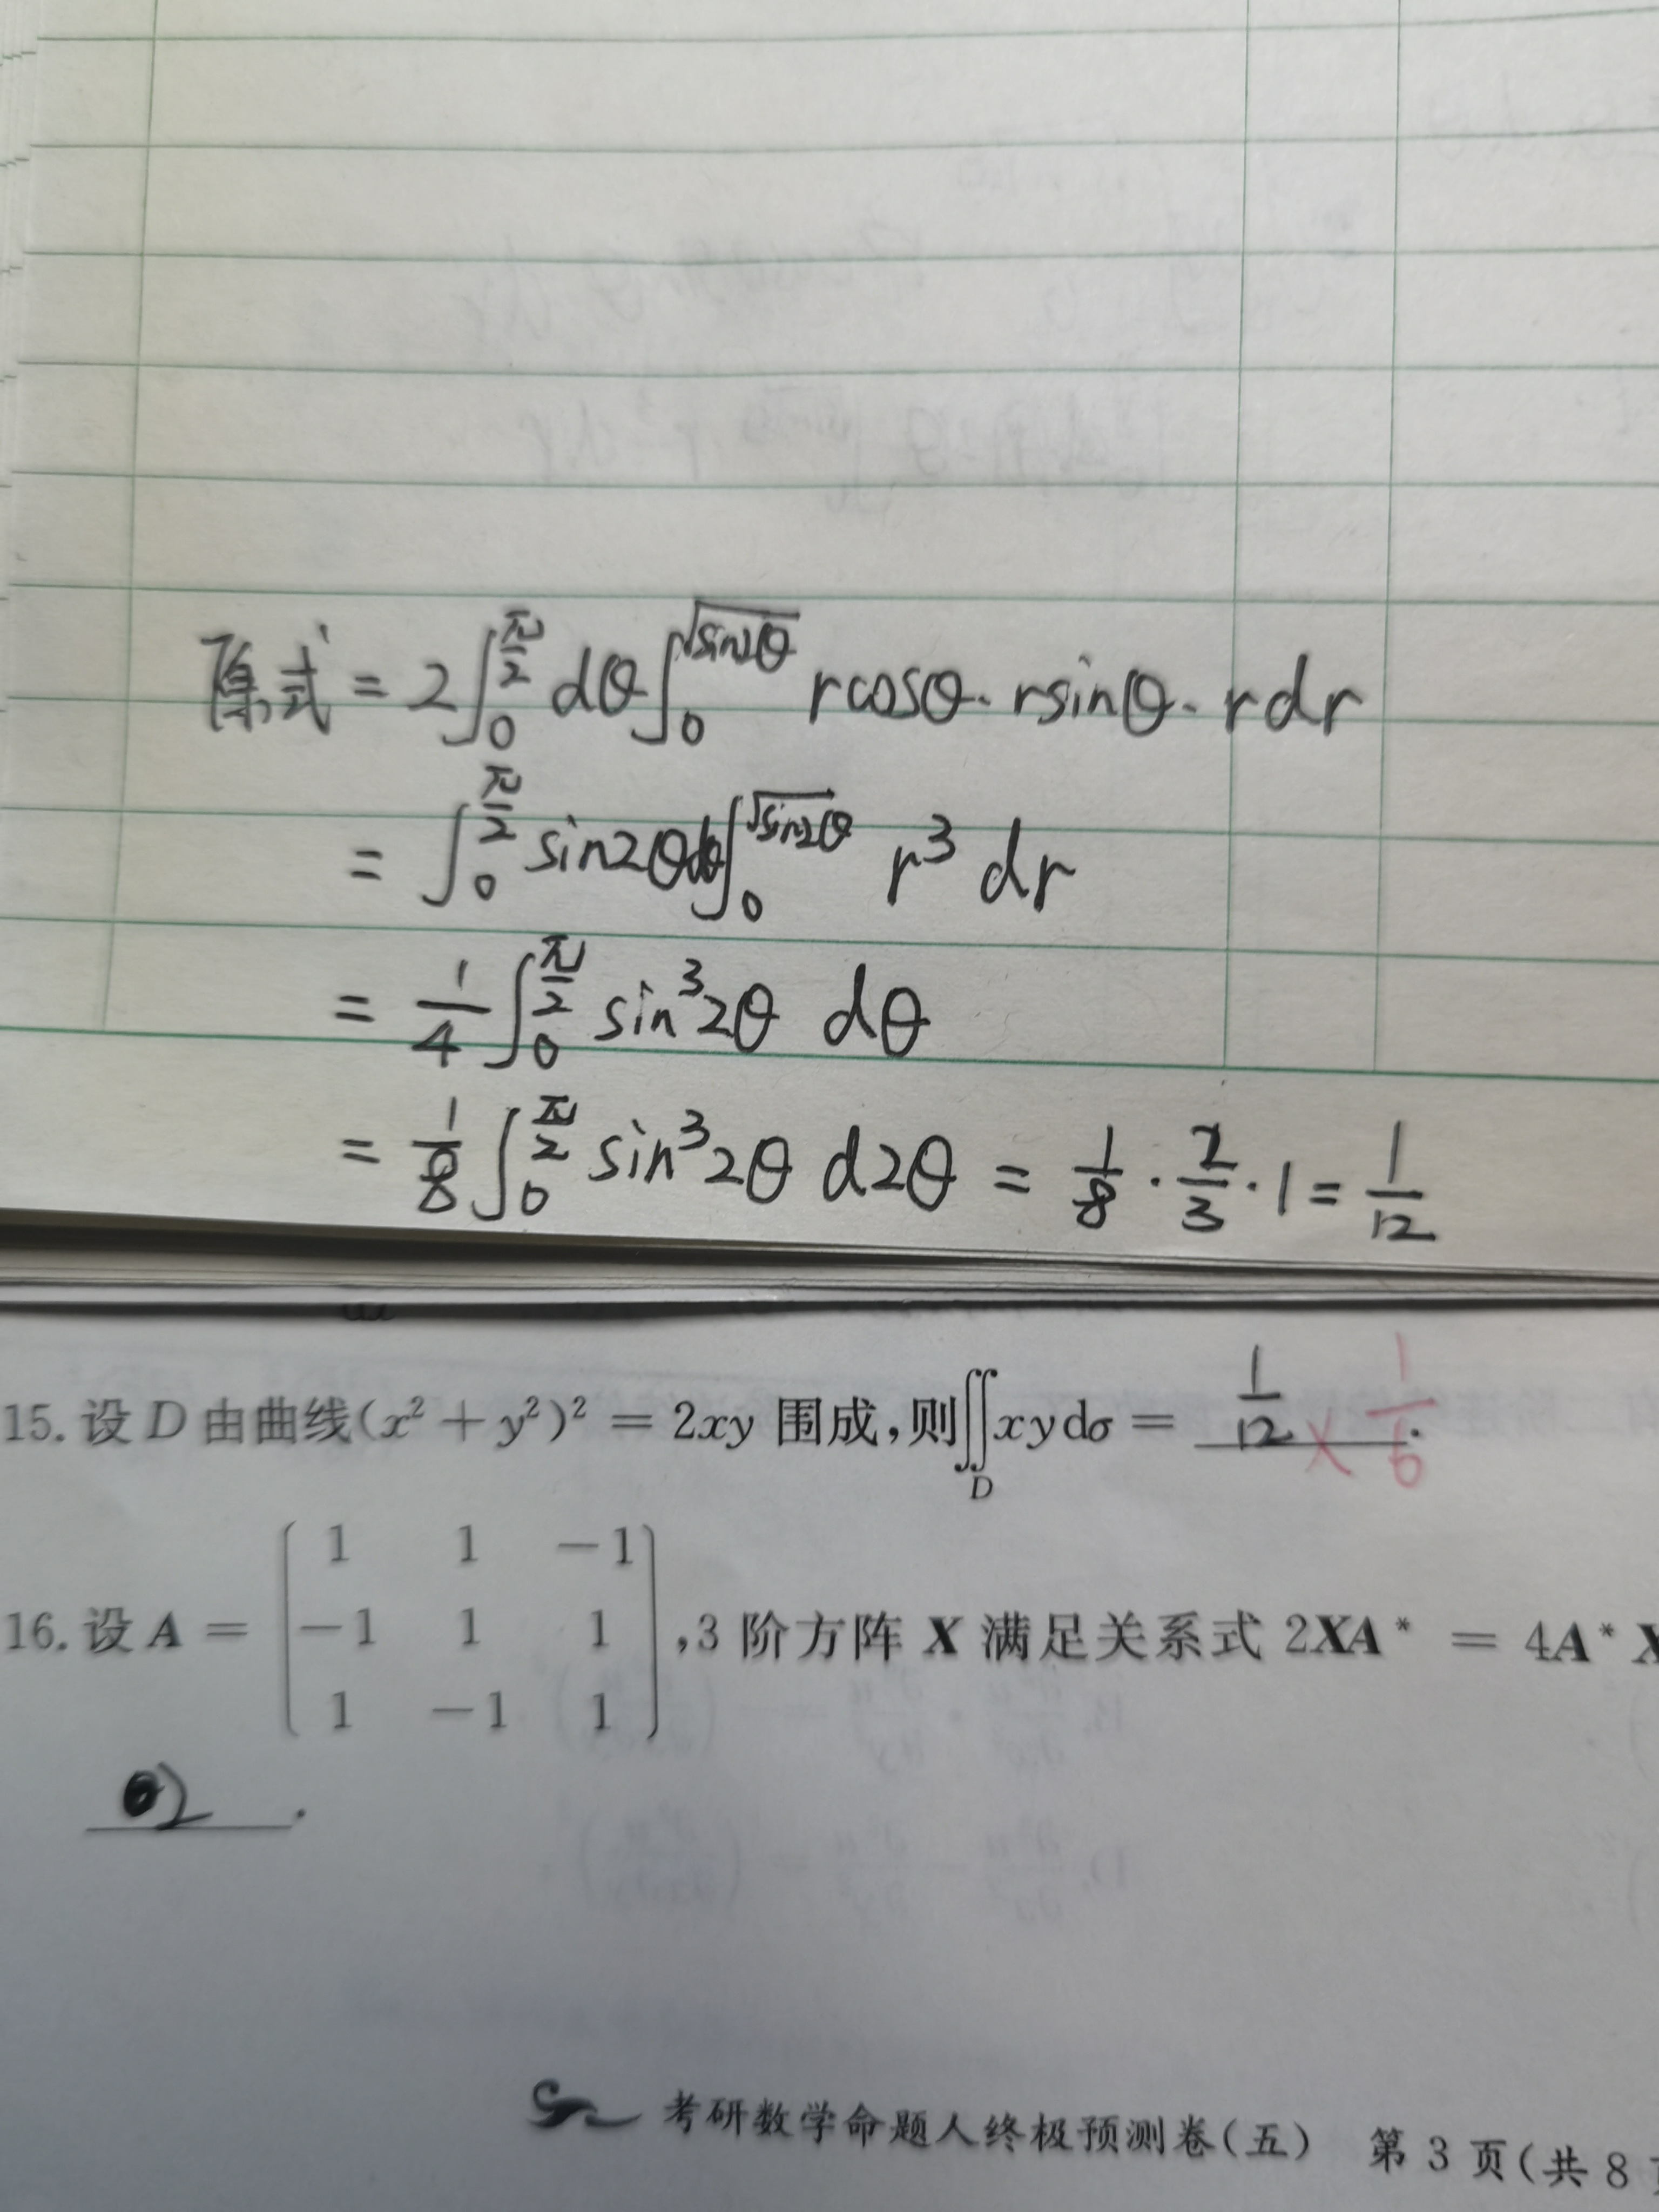 原式 = 2∫₀^{π/2} dθ ∫₀^{√sin2θ} rcosθ · rsinθ · r dr
= ∫₀^{π/2} sin2θ dθ ∫₀^{√sin2θ} r³ dr
= 1/4 ∫₀^{π/2} sin³2θ dθ
= 1/8 ∫₀^{π/2} sin³2θ d2θ = 1/8 · 2/3 · 1 = 1/12
15. 设 D 由曲线(x² + y²)² = 2xy 围成,则∬_D xydσ = 1/12 × 1/6 .
16. 设 A = ( 1 1 −1
−1 1 1
1 −1 1 ) ,3 阶方阵 X 满足关系式 2XA* = 4A*X
2 .
考研数学命题人终极预测卷(五) 第 3 页(共 8